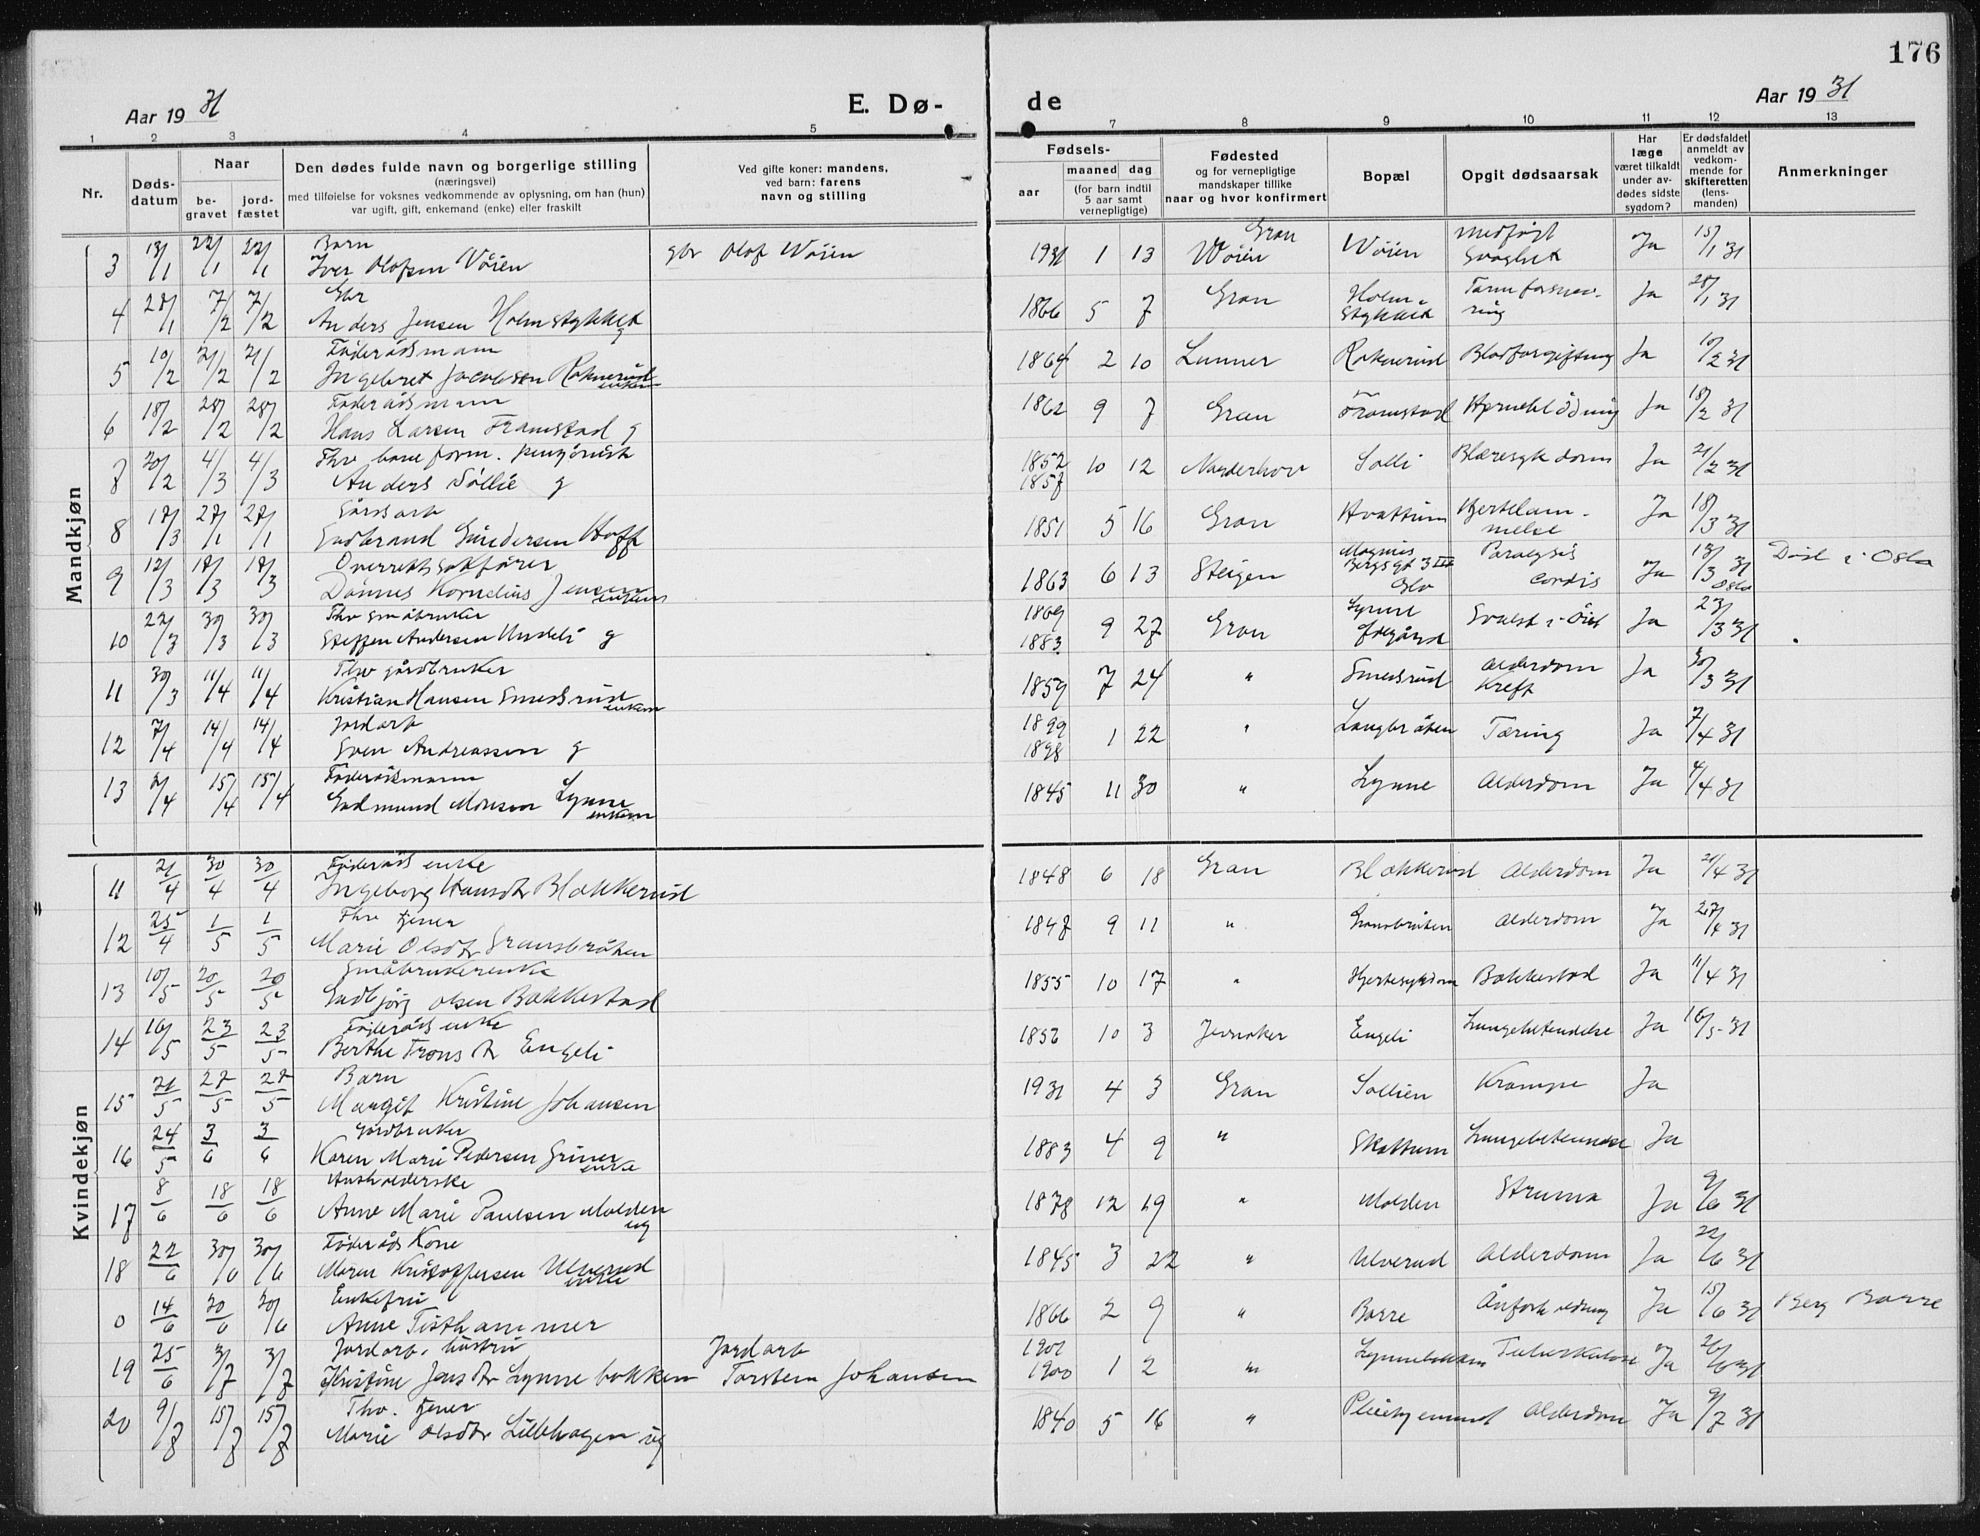 176
Aar 1931 E. Dø- de Aar 1931
1 2 3 4 5 7 8 9 10 11 12 13
Nr. Døds-datum Naar be-gravet jord-fæstet Den dødes fulde navn og borgerlige stilling (næringsvei) med tilføielse for voksnes vedkommende av oplysning, om han (hun) var ugift, gift, enkemand (enke) eller fraskilt Ved gifte koner: mandens, ved barn: farens navn og stilling Fødsels- aar maaned dag (for barn indtil 5 aar samt vernepligtige) Fødested og for vernepligtige mandskaper tillike naar og hvor konfirmert Bopæl Opgit dødsaarsak Har læge været tilkaldt under av-dødes sidste sygdom? Er dødsfaldet anmeldt av vedkom-mende for skifteretten (lens-manden) Anmerkninger
Mandkjøn
3 13/1 22/1 22/1 Barn Iver Olofsen Vøien gbr Olof Wøien 1931 1 13 Wøien Gran Wøien medfødt svaghet Ja 15/1 31
4 28/1 7/2 7/2 Gbr Anders Jensen Holmstykket g 1866 5 7 Gran Holmstykket Tarmforsnevring Ja 28/1 31
5 10/2 21/2 21/2 Føderådsmann Ingebret Jacobsen Roknerud enkem 1864 2 10 Lunner Roknerud Blodforgiftning Ja 10/2 31
6 18/2 28/2 28/2 Føderådsmann Hans Larsen Framstad g 1862 9 7 Gran Framstad Hjerneblødning Ja 18/2 31
7 20/2 4/3 4/3 Fhv baneform. pensjonist Anders Sollie g 1852 1857 10 12 Norderhov Solli Blæresykdom Ja 21/2 31
8 17/3 27/1 27/1 Gårdsarb Gudbrand Gundersen Hoff 1851 5 16 Gran Hvattum Hjertelammelse Ja 18/3 31
9 12/3 18/3 18/3 Overrettssakfører Dønnes Kornelius Jensen enkem 1863 6 13 Steigen Magnus Bergs gt 3 III Oslo Paralysis cordis Ja 13/3 31 Oslo Død i Oslo
10 22/3 30/3 30/3 Fhv småbruker Steffen Andersen Undeli g 1869 1883 9 27 Gran Lynne Ødegård Svulst i Ja 23/3 31
11 30/3 11/4 11/4 Fhv gårdbruker Kristian Hansen Smedsrud enkem 1859 7 24 " Smedsrud Alderdom Kreft Ja 30/3 31
12 7/4 14/4 14/4 Jordarb Sven Andreassen g 1899 1898 1 22 " Langbråten Tæring Ja 7/4 31
13 15/4 15/4 Føderådsmann Gudmund Monsen Lynne enkem 1845 11 30 " Lynne Alderdom Ja 31
Kvindekjøn
11 21/4 30/4 30/4 Føderåds enke Ingeborg Hansdtr Blakkerud 1848 6 18 Gran Blakkerud Alderdom Ja 21/4 31
12 25/4 1/5 1/5 Fhv tjener Marie Olsdtr Gransbråten 1847 9 11 " Gransbråten Alderdom Ja 27/4 31
13 10/5 20/5 20/5 Småbrukerenke Gudbjørg Olsen Bakkestad 1855 10 17 " Hjertesykdom Bakkestad Ja 11/4 31
14 16/5 23/5 23/5 Føderåds enke Berthe Trons dtr Engeli 10 3 Jevnaker Engeli Lungebetendelse Ja 16/5 31
15 21/5 27/5 27/5 Barn Margit Kristine Johansen 1931 4 3 Gran Sollien Krampe Ja
16 24/5 3/6 3/6 Jordbruker Karen Marie Pedersen Griner enke 1883 4 9 " Skattum Lungebetennelse Ja
17 8/6 18/6 18/6 Husholderske Anne Marie Paulsen Molden ug 1878 12 19 " Molden Struma Ja 9/6 31
18 22/6 30/6 30/6 Føderåds Kone Maren Kristoffersen Ulverud enke 1845 3 22 " Ulverud Alderdom Ja 22/6 31
0 14/6 20/6 20/6 Enkefru Anne Tisthammer 1866 2 9 " Borre Ja 15/6 31 Berg Borre
19 25/6 3/7 3/7 Jordarb. hustru Kristine Jensdtr Lynnebakken Jordarb Torstein Johansen 1901 1900 1 2 " Lynnebakken Tuberkulose Ja 26/6 31
20 9/7 15/7 15/7 Fhv. tjener Marie Olsdtr Lillehagen ug 1840 5 16 " Pleiehjemmet Alderdom Ja 9/7 31